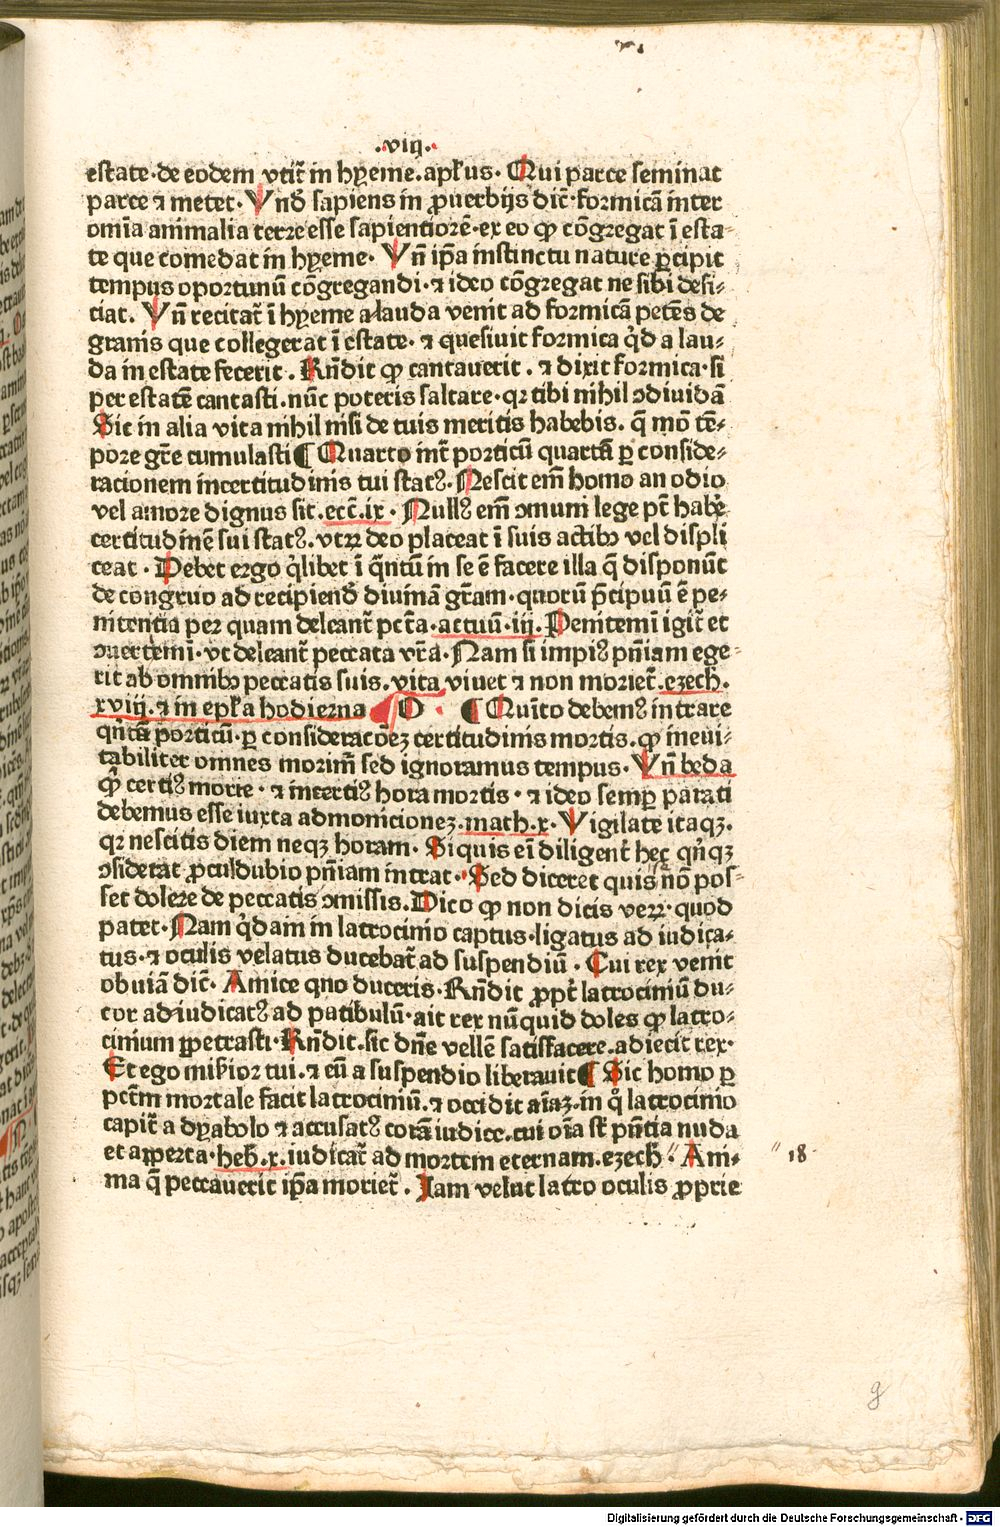 .viij.
estate·de eodem vtit᷑ in hyeme.apl̓us· Qui parce seminat
parce ⁊ metet· Vnd̓ sapiens in ꝓuerbijs dic̄·formicā inter
om̄ia animalia terre esse sapientiorē·ex eo ꝙ cōgregat ī esta⸗
te que comedat in hyeme· Vn̄ ip̄a instinctu nature ꝑcipit
tempus oportunū cōgregandi·⁊ ideo cōgregat ne sibi defi⸗
ciat. Vn̄ recitat᷑ ī hyeme alauda venit ad formicā petēs de
granis que collegerat ī estate·⁊ quesiuit formica q̇d a lau⸗
da in estate fecerit. Rn̄dit ꝙ cantauerit.⁊ dixit formica·si
per estatē cantasti.nūc poteris saltare·qꝛ tibi nihil ꝯdiuidā
Sic in alia vita nihil nisi de tuis meritis habebis. q̄ mō tē⸗
pore gr̄e cumulasti¶ Quarto int̄ porticū quartā ꝑ conside⸗
racionem incertitudinis tui statꝰ. Nescit em̄ homo an odio
vel amore dignus sit.ecc̄.ix· Nullꝰ em̄ ꝯmuni lege pt̄ habe᷑
certitudinē sui statꝰ.vtꝝ deo placeat ī suis actibꝰ vel displi
ceat· Debet ergo q̇libet ī q̄ntū in se ē facere illa q̄ disponūt
de congruo ad recipiend̓ diuinā gr̄am·quorū p̄cipuū ē pe⸗
nitentia per quam deleant᷑ pctā.actuū.iij. Penitemī igit᷑ et
ꝯuertemī·vt deleant᷑ peccata vr̄a. Nam si impiꝰ pn̄iam ege⸗
rit ab omnibꝰ peccatis suis.vita viuet ⁊ non moriet᷑.ezech.
xviij.⁊ in epl̓a hodierna ¶ O · ¶ Quīto debemꝰ intrare
qn̄tā porticū.ꝑ consideracōez certitudinis mortis.ꝙ ineui⸗
tabiliter omnes morim᷑ sed ignoramus tempus· Vn̄ beda
ꝙ̄ certiꝰ morte·⁊ incertiꝰ hora mortis·⁊ ideo semꝑ parati
debemus esse iuxta admonicionez.math.x· Vigilate itaqꝫ.
qꝛ nescitis diem neqꝫ horam· Si quis eī diligent᷑ hec qn̄qꝫ
ꝯsiderat ꝓculdubio pn̄iam intrat· Sed diceret quis nō pos⸗
set dolere de peccatis ꝯmissis. Dico ꝙ non dicis veꝝ·quod
patet· Nam q̇dam in latrocinio captus·ligatus ad iudica⸗
tus·⁊ oculis velatus ducebat᷑ ad suspendiū· Cui rex venit
obuiā dic̄· Amice qno duceris·Rn̄dit ꝓpt᷑ latrociniū du⸗
cor adiudicatꝰ ad patibulū·ait rex nūquid doles ꝙ latro⸗
cinium ꝑpetrasti· Rn̄dit.sic dn̄e vellē satisfacere.adiecit rex·
Et ego misr̄ior tui.⁊ eū a suspendio liberauit¶ Sic homo ꝑ
pctm̄ mortale facit latrociniū.⁊ occidit aīaꝫ.in q̇ latrocinio
capit᷑ a dyabolo ⁊ accusatꝰ corā iudice.cui oīa st̄ pn̄tia nuda
et aꝑperta·heb̓.x.iudicat᷑ ad mortem eternam.ezech̓ ʺ Ani⸗ ʺ 18·
ma q̄ peccauerit ip̄a moriet᷑. Iam velut latro oculis ꝓprie
g
Digitalisierung gefördert durch die Deutsche Forschungsgemeinschaft · DFG